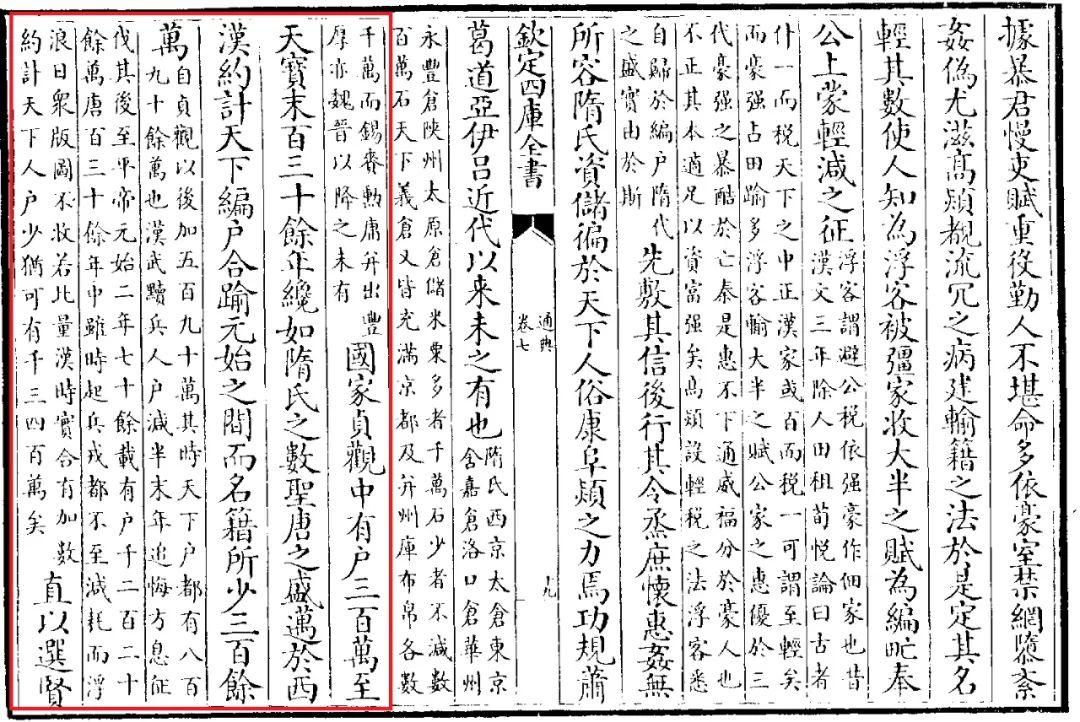 據暴君慢吏賦重役勤人不堪命多依豪室禁網隳紊
姦偽尤滋髙熲覩流冗之病建輸籍之法於是定其名
輕其數使人知為浮客被彊家收大半之賦為編甿奉
公上蒙輕減之征
浮客謂避公税依强豪作佃家也昔
漢文三年除人田租荀悦論曰古者
什一而税天下之中正漢家或百而税一可謂至輕矣
而豪强占田踰多浮客輸大半之賦公家之惠優於三
代豪强之暴酷於亡秦是惠不下通威福分於豪人也
不正其本適足以資富强矣髙熲設輕税之法浮客悉
自歸於編户隋代
之盛實由於斯
先敷其信後行其令烝庶懷惠姦無
所容隋氏資儲徧於天下人俗康阜熲之力焉功規蕭
欽定四庫全書
通典
卷七
十九
葛道亞伊呂近代以来未之有也
隋氏西京太倉東京
含嘉倉洛口倉華州
永豐倉陜州太原倉儲米粟多者千萬石少者不減數
百萬石天下義倉又皆充滿京都及并州庫布帛各數
千萬而錫賚勲庸并出豐
厚亦魏晉以降之未有
國家貞觀中有户三百萬至
天寶末百三十餘年纔如隋氏之數聖唐之盛邁於西
漢約計天下編户合踰元始之間而名籍所少三百餘
萬
自貞觀以後加五百九十萬其時天下户都有八百
九十餘萬也漢武黷兵人户減半末年追悔方息征
伐其後至平帝元始二年七十餘載有户千二百二十
餘萬唐百三十餘年中雖時起兵戎都不至減耗而浮
浪日衆版圖不收若比量漢時實合有加數
約計天下人户少猶可有千三四百萬矣
直以選賢